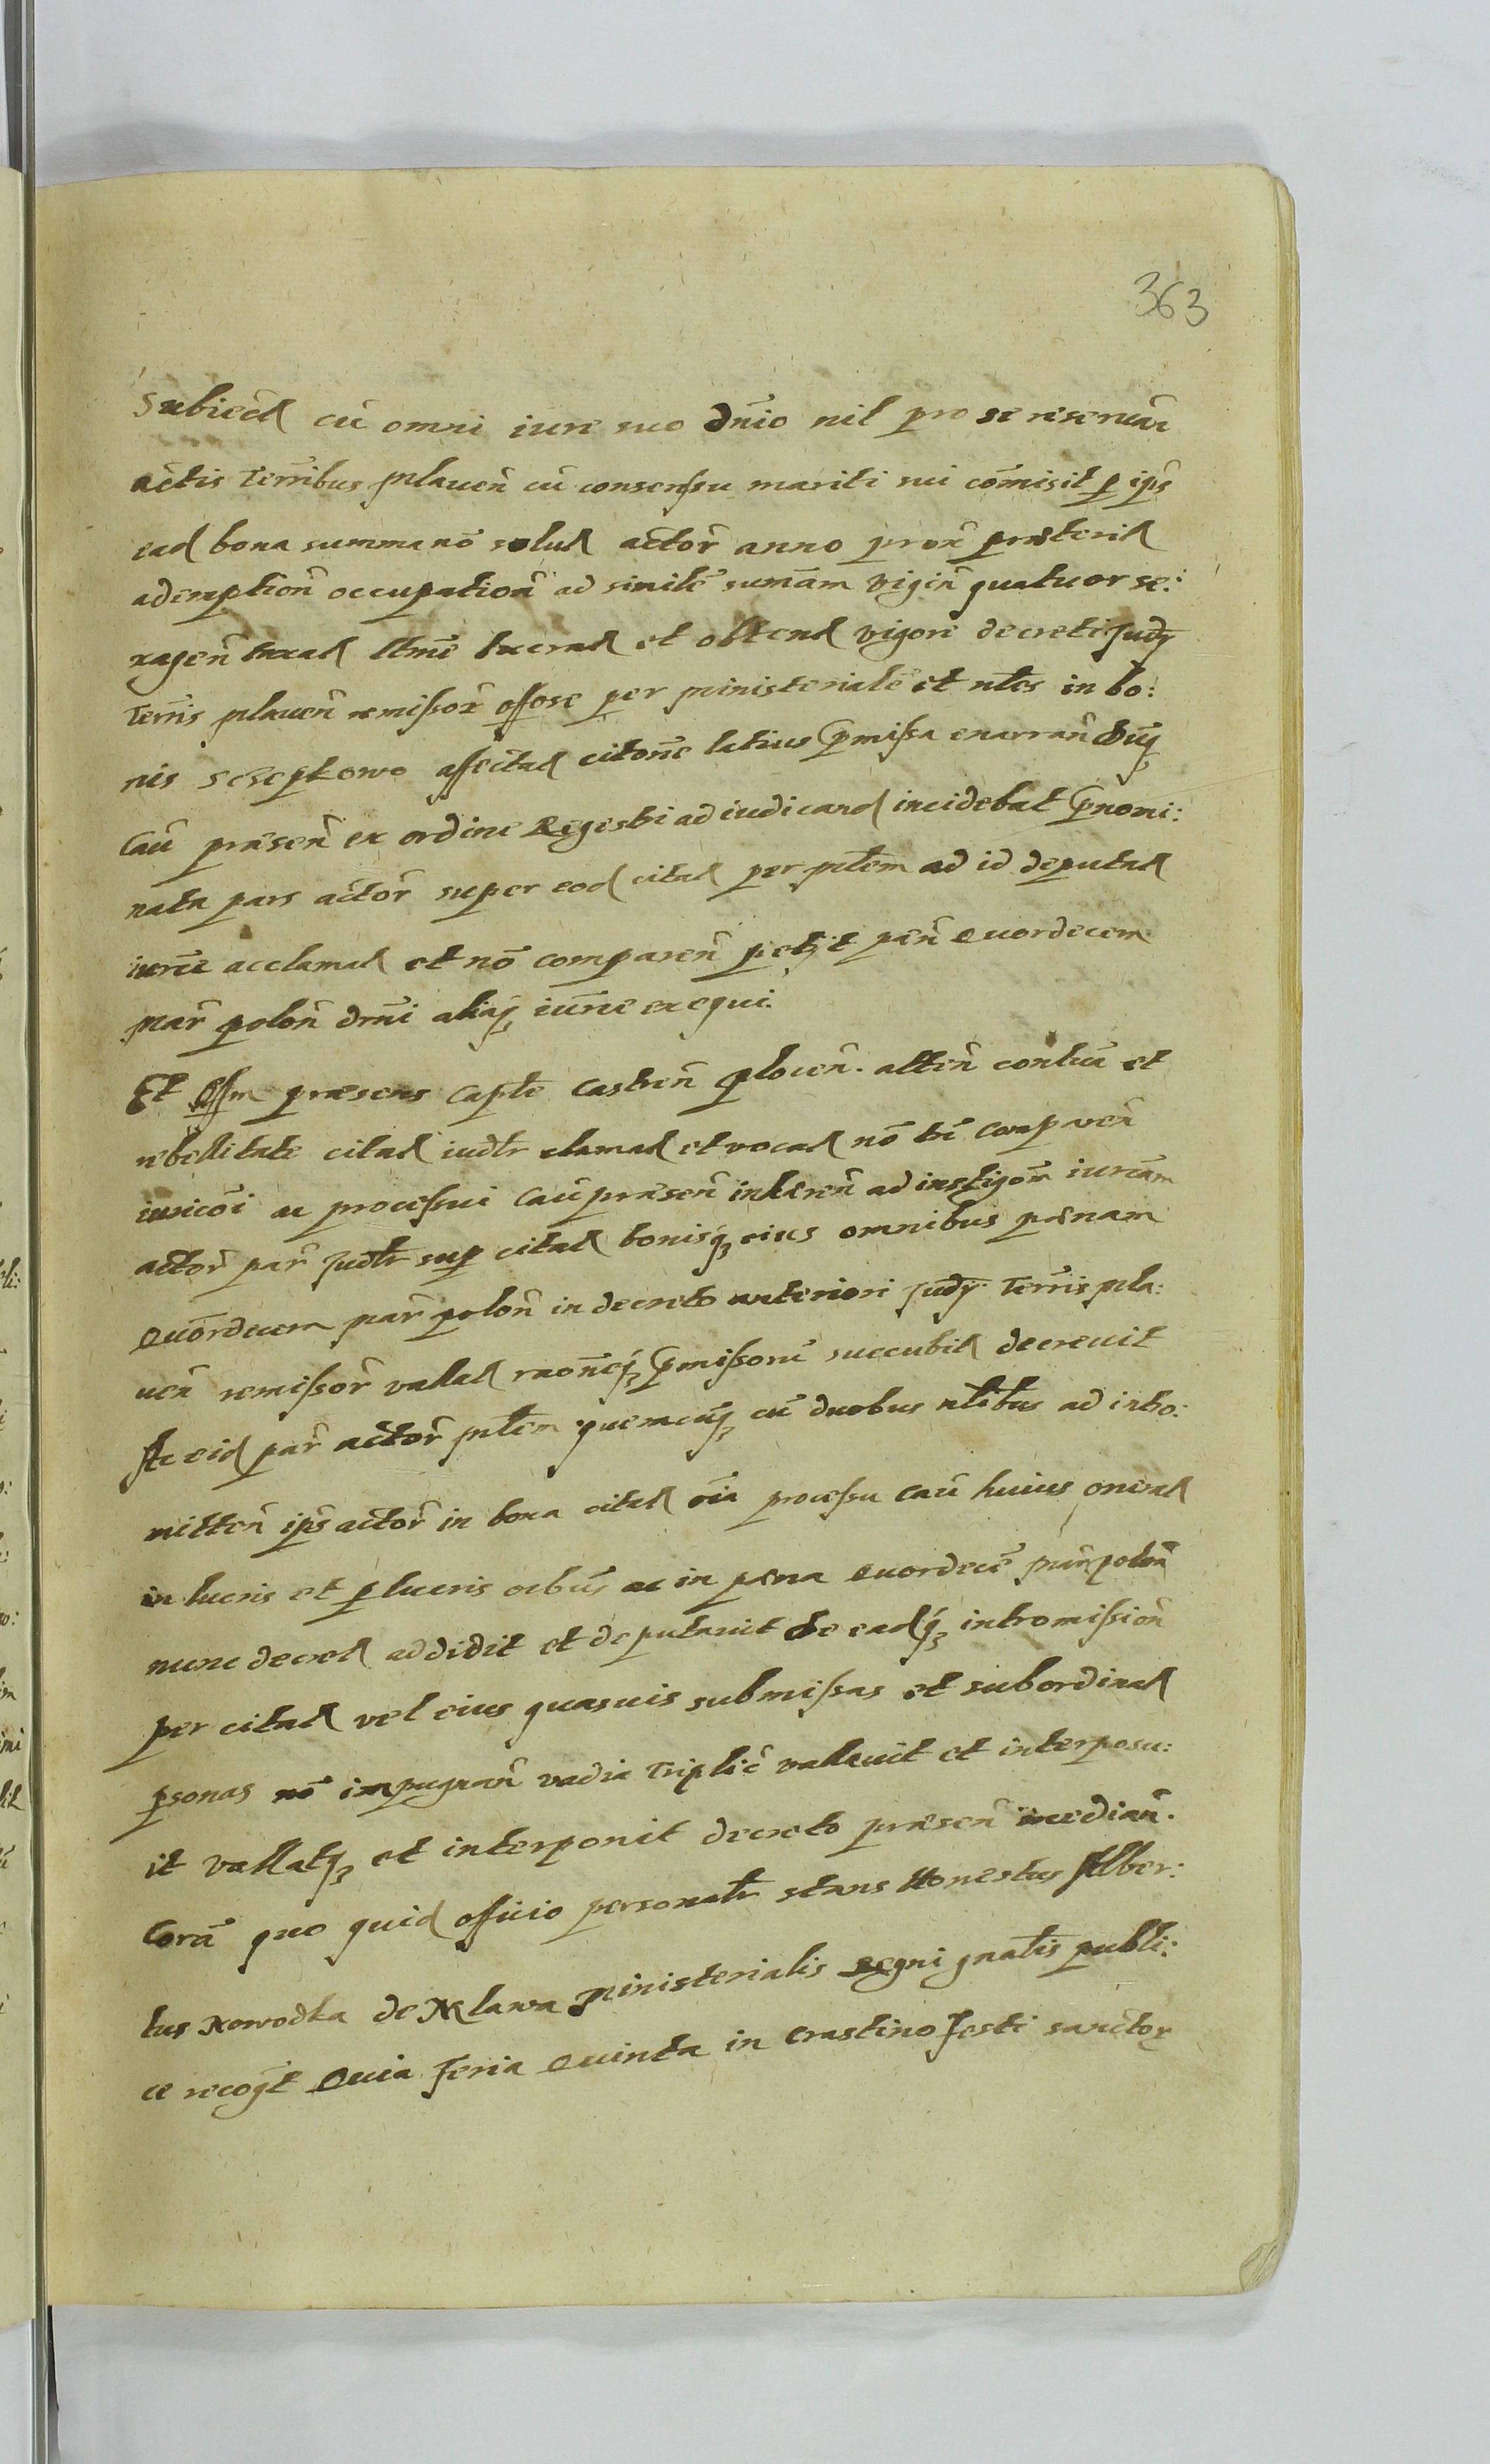 363
Subiect cū omni iure suo dn̄io nil pro se reseruan̄
actis Terribus mlauen̄ cū consensu mariti sui com̄isit p ips
ead bona summa nō solut actor̄ anno prox̄ præterit
ademption̄ occupation̄ ad similē sum̄am vigin̄ quatuor se:
xagen̄ taxat ltme lucrat et obtent vigore decreti Judÿ
Terris mlauen̄ remissor̄ offose per ministerialē et nbles in bo:
nis Szczepkowo affectat citone latius p̄missa enarran̄ dūq₃
Cau præsen̄ ex ordine Regestri ad iudicand incidebat p̄nomi:
nata pars actor̄ super eod citat per mtlem ad id deputat
iurne acclamat et nō comparen̄ petÿt pæn̄ Quordecem
mar̄ polon̄ dmi aliaq₃ iurne exequi.
Et Offm præsens Capte Castren̄ plocen̄. atten̄ contua et
rebellitate citat iudtr clamat et vocat nō tn̄ comparen̄
iuricōi ac processui Cau præsen̄ inhæren̄ ad instigōm iurcam
actor̄ par̄ Judtr sup citat bonisq₃ eius omnibus pænam
Quordecem mar̄ polon̄ in decreto anteriori Judÿ Terris mla:
uen̄ remissor̄ vallat raoneq₃ p̄missorū succubit decreuit
Ac eid par̄ actor̄ mtlem quemcuq₃ cū duobus nlibus ad intro:
mitten̄ ips actor̄ in bona citat oīa processu Cau huius onerat
in lucris et p lucris orbus ac in pæna Quordecē mar̄ polon̄
nunc decret addidit et deputauit De eadq₃ intromission̄
per citat vel eius quasuis submissas et subordinat
psonas nō impugnan̄ vadia Triplic̄ vallauit et interposu:
it vallatq₃ et interponit decreto præsen̄ median̄.
Corā quo quid officio personatr stans Honestus Alber:
tus Nowodka de Mlawa ministerialis Regni gnalis publi:
ce recogt Quia Feria Quinta in Crastino Festi sanctor̄